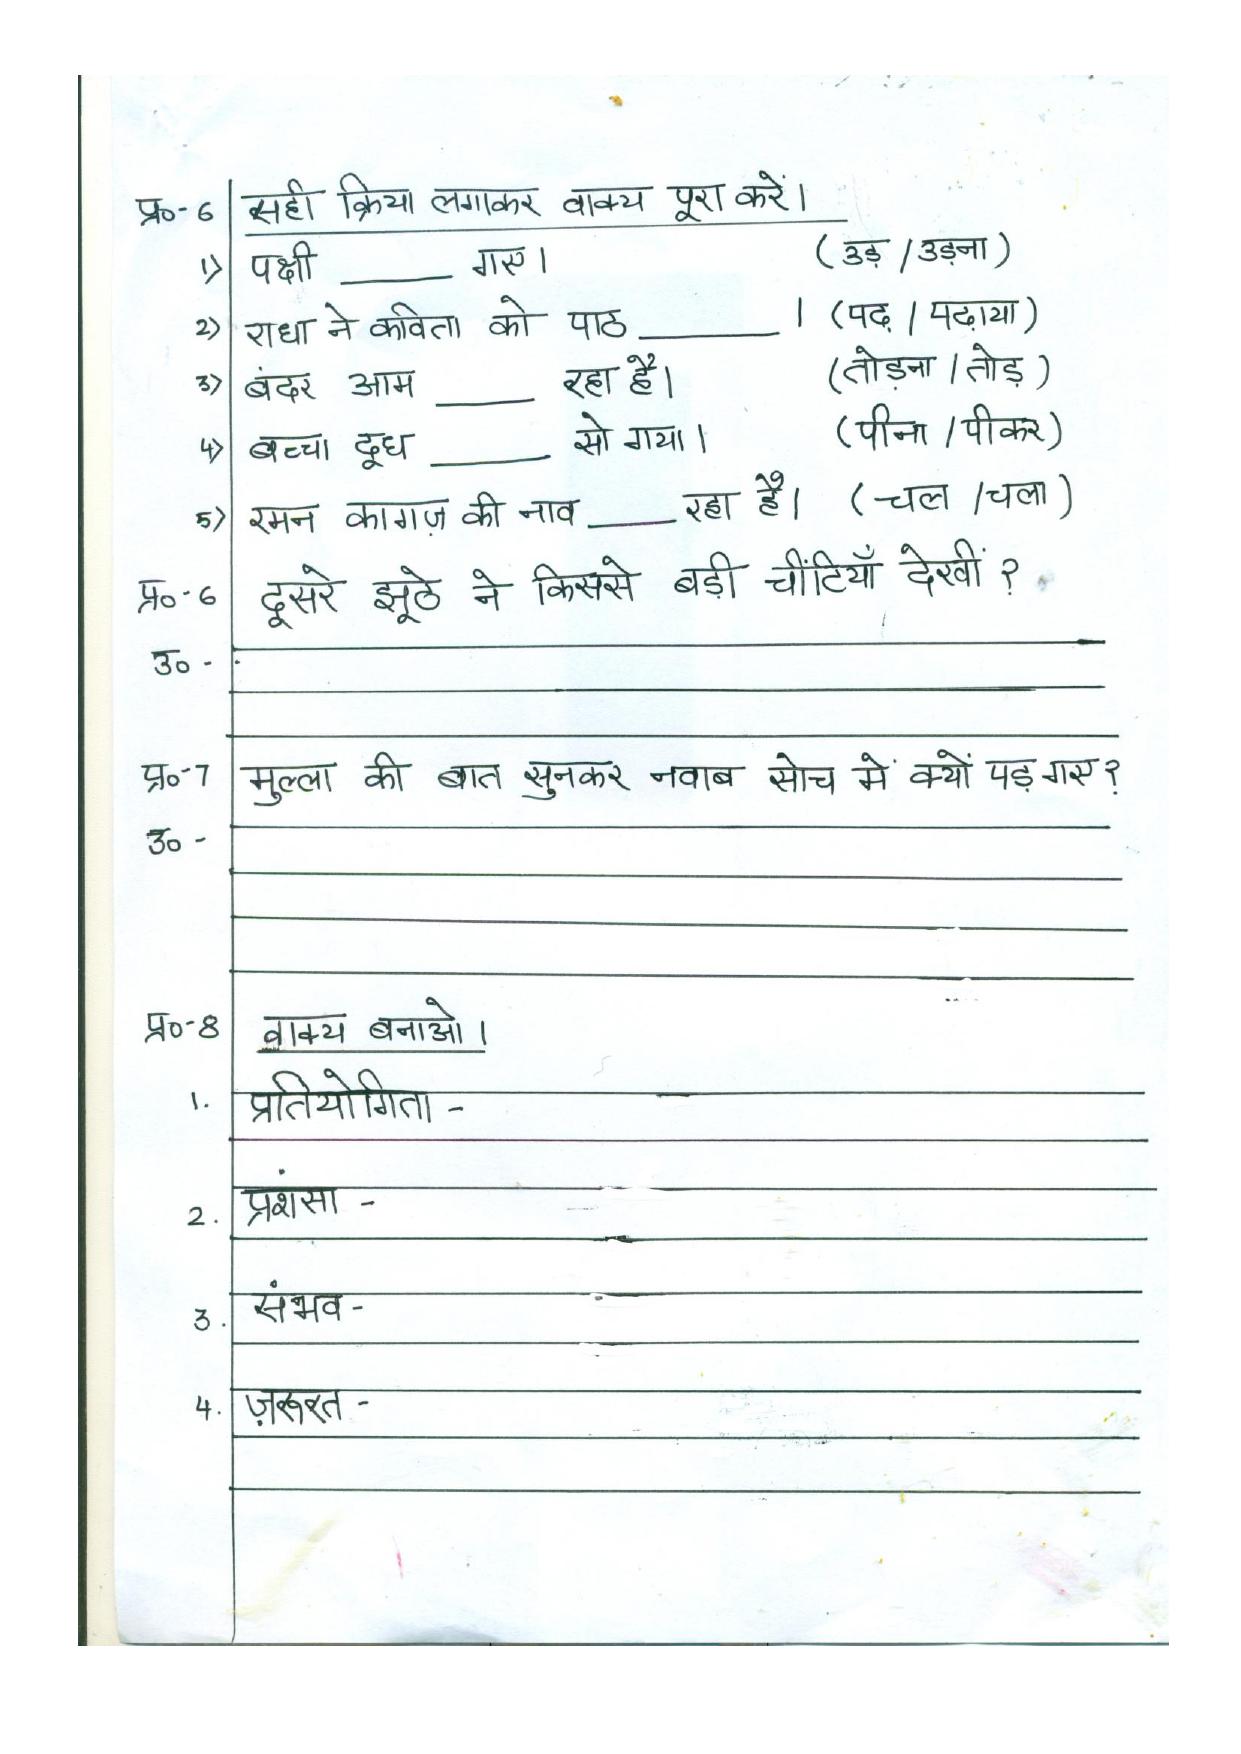 प्र०-6 सही क्रिया लगाकर वाक्य पूरा करें।
1) पक्षी ______ गए। (उड़ / उड़ना)
2) राधा ने कविता को पाठ ________ । (पढ़ / पढ़ाया)
3) बंदर आम _____ रहा है। (तोड़ना / तोड़)
4) बच्चा दूध ______ सो गया। (पीना / पीकर)
5) रमन कागज़ की नाव _____ रहा है। (चल / चला)
प्र०-6 दूसरे झूठे ने किससे बड़ी चींटियाँ देखीं ?
उ० -
प्र०-7 मुल्ला की बात सुनकर नवाब सोच में क्यों पड़ गए ?
उ० -
प्र०-8 वाक्य बनाओ।
1. प्रतियोगिता -
2. प्रशंसा -
3. संभव -
4. ज़रूरत -